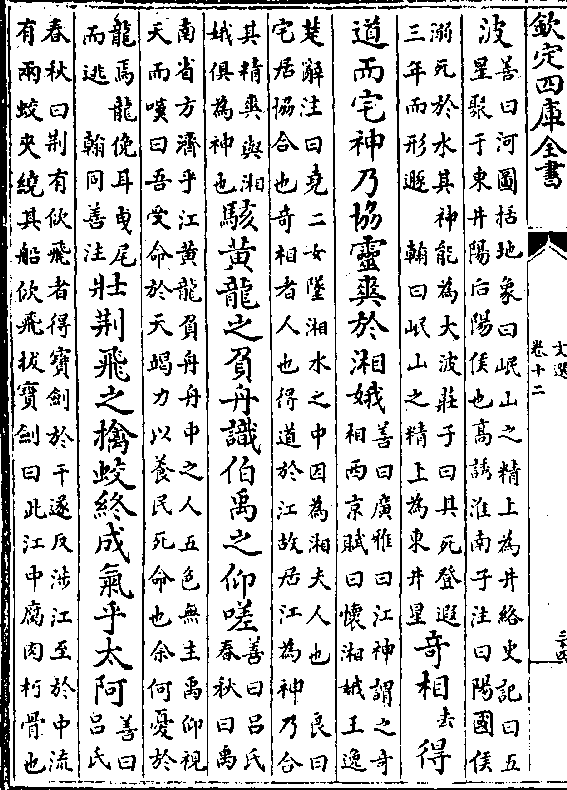 欽定四庫全書
文選
卷十二
三十四
波善曰河圖括地象曰岷山之精上為井絡史記曰五
星聚于東井陽后陽侯也高誘淮南子注曰陽國侯
溺死於水其神能為大波莊子曰其死登遐
三年而形遯 翰曰岷山之精上為東井星
奇相去得
道而宅神乃協靈爽於湘娥善曰廣雅曰江神謂之奇
相西京賦曰懷湘娥王逸
楚辭注曰堯二女墜湘水之中因為湘夫人也 良曰
宅居協合也奇相者人也得道於江故居江為神乃合
其精爽與湘
娥俱為神也
駭黃龍之負舟識伯禹之仰嗟善曰吕氏
春秋曰禹
南省方濟乎江黃龍負舟舟中之人五色無主禹仰視
天而嘆曰吾受命於天竭力以養民死命也余何憂於
龍焉龍俛耳曵尾
而逃 翰同善注
壯荆飛之擒蛟終成氣乎太阿善曰
吕氏
春秋曰荆有佽飛者得寶劍於干遂反涉江至於中流
有兩蛟夾繞其船佽飛拔寶劍曰此江中腐肉朽骨也